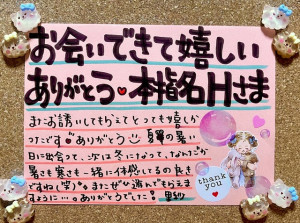 お会いできて嬉しい
ありがとう♥本指名Hさま
またお誘いしてもらえてとっても嬉しか
ったです♥ありがとう 夏の暑い
日に出会って、次は冬になって、なんだか
暑さも寒さも一緒に体感してるの良き
ですね(笑)。またぜひ遊んでもらえま
すように…。ありがとうでした!
thank
you